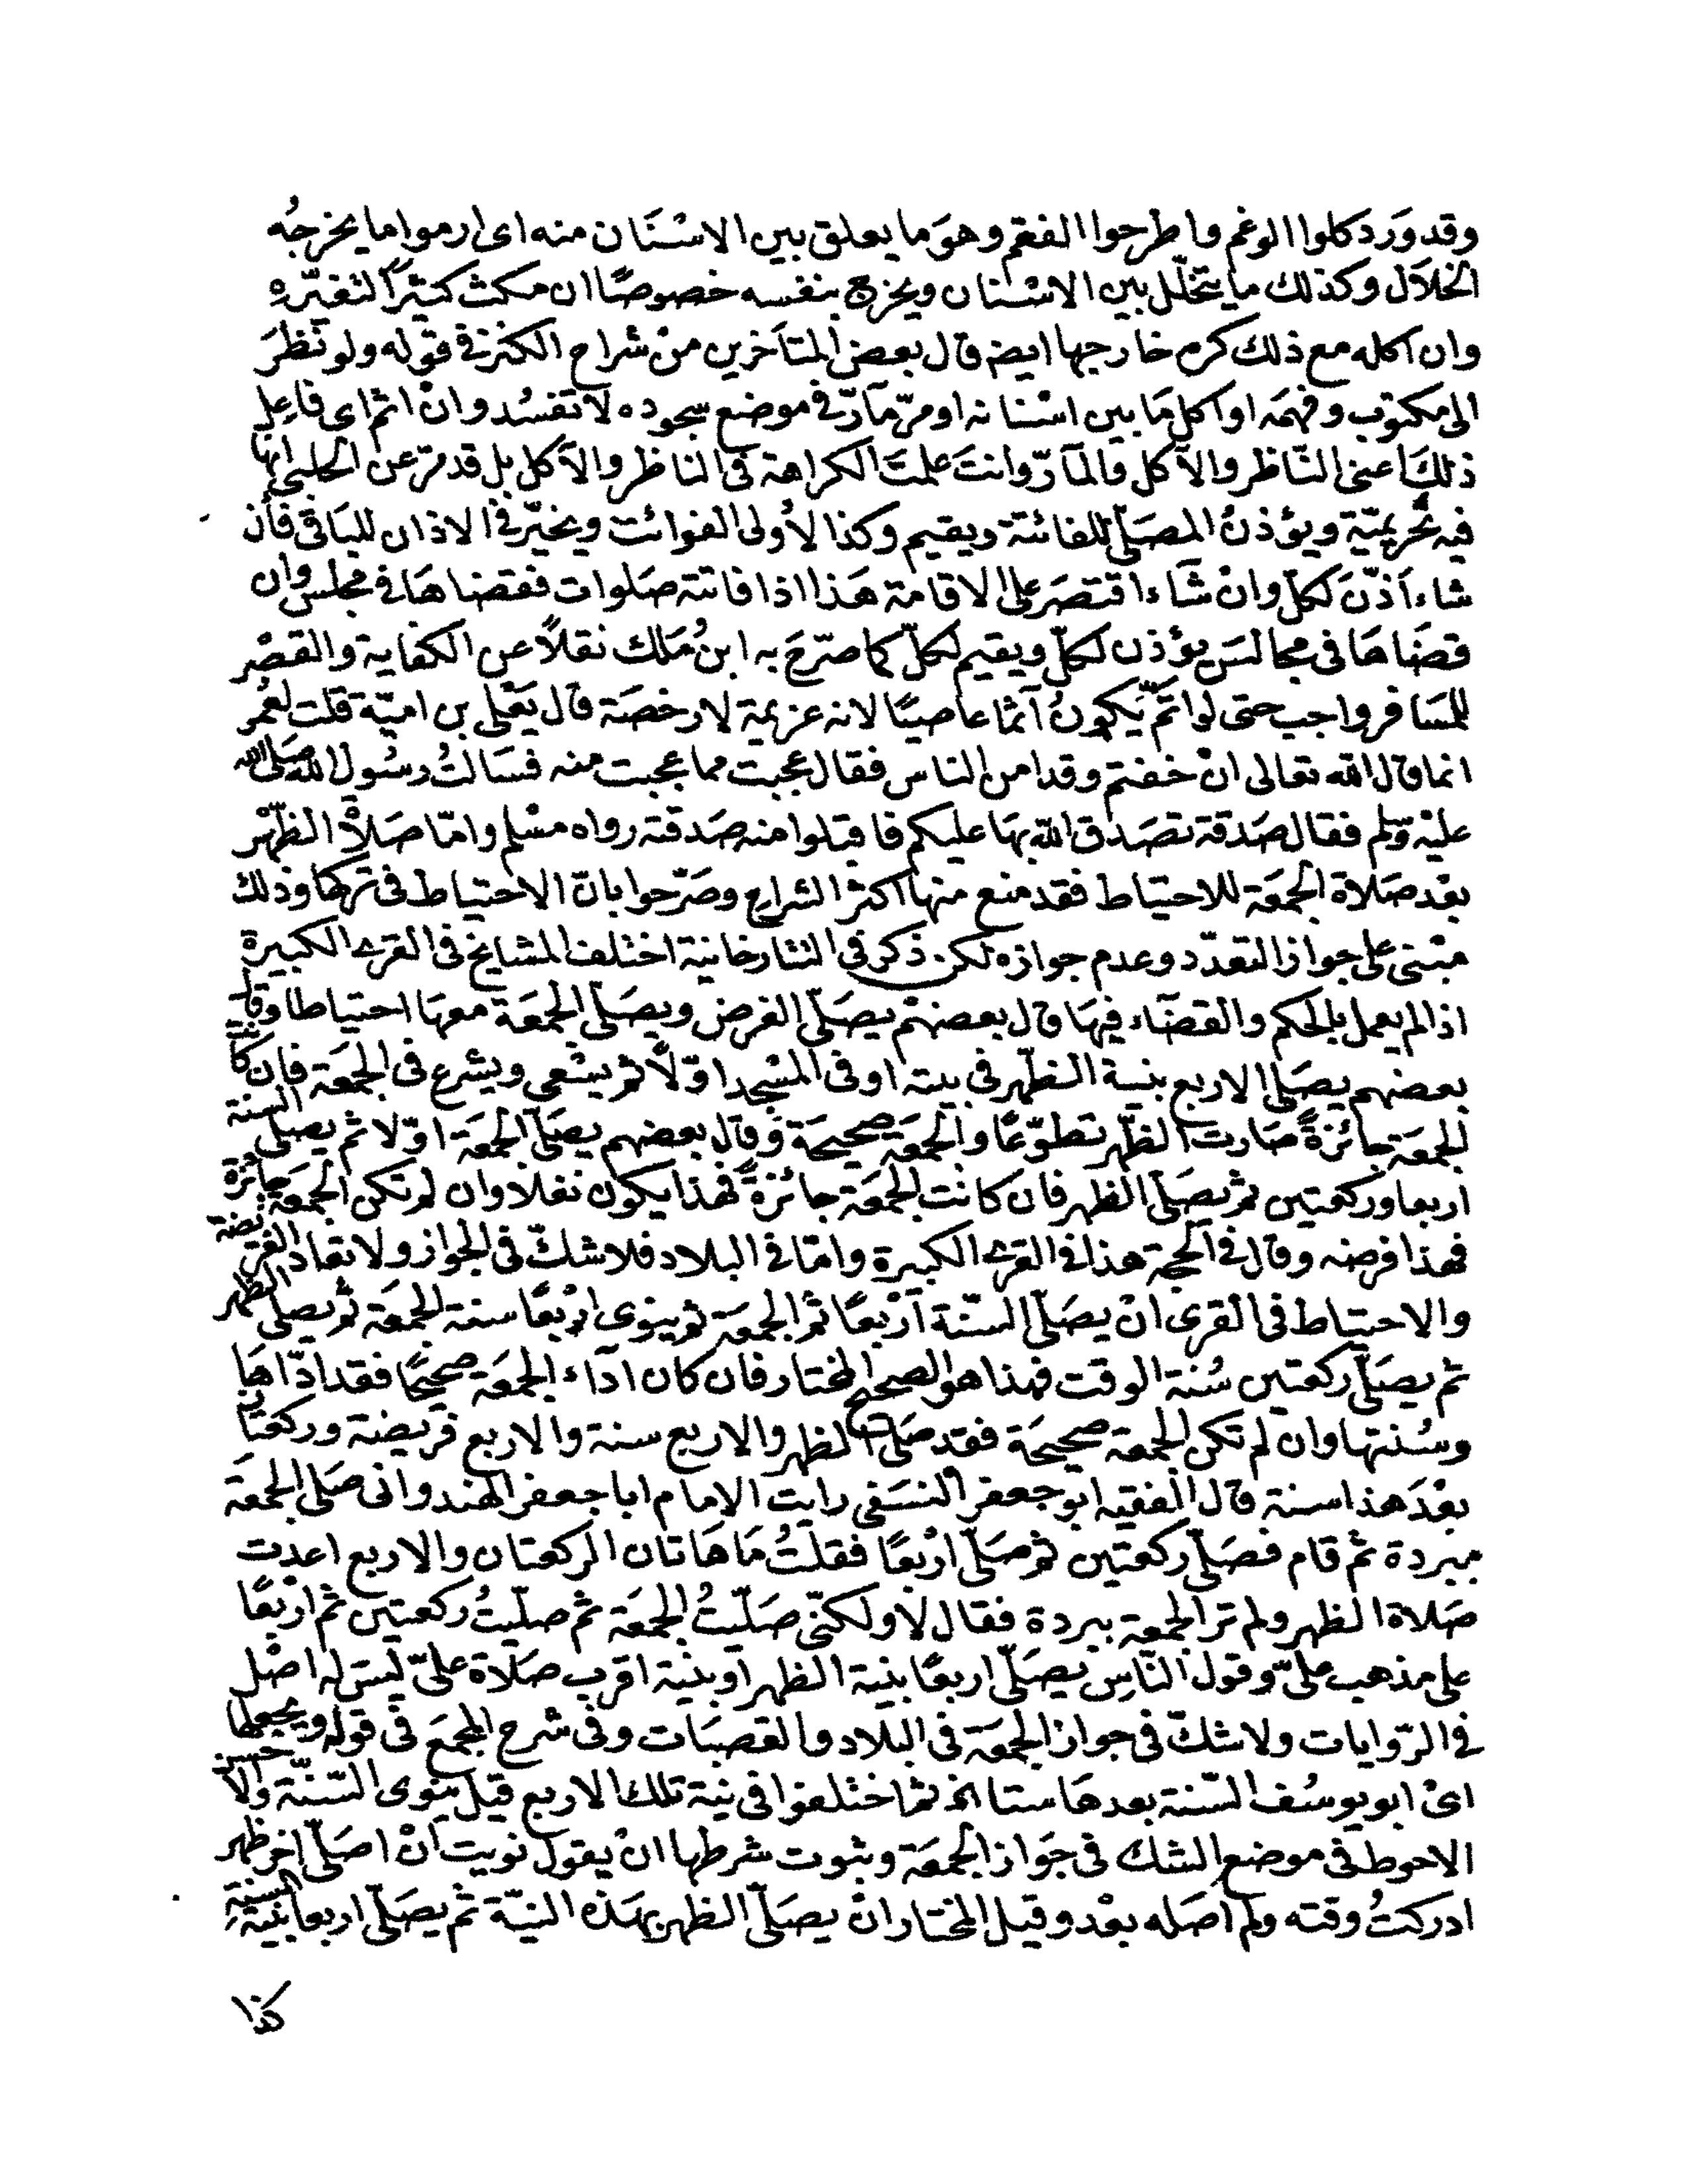 وقد وَرَد كلوا الوغم واطرحوا الفغم وهوَ ما يعلق بين الاسْنَان منه اى ارموا ما يخرجُه
الخلاَل وكذلك ما يتخلّل بين الاسْنان ويخرج بنفسه خصوصًا ان مكث كثيرًا لتغيّره
وان اكله مع ذلك كره خارجها ايضا قال بعض المتأخرين منْ شراح الكنز فى قوله ولو نَظرَ
الى مكتوب وفهمَه او اكل مَا بين اسْنانه او مرّ مآرّ فى موضع سجوده لا تفسُد وانْ اثم اى فاعِل
ذلكَ اعنى النّاظر والآكل والمآرّ وانتَ علمتَ الكراهة فى الناظر والآكل بل قد مرّ عن الحلبى انها
فيه تحْريميّة ويؤذنُ المصَلّى للفائتة ويقيم وكذا لأولى الفوائت ويخيّر فى الاذان للبَاقى فأن
شاء أذّنَ لكلّ وانْ شَاء اقتصَر على الاقامة هَذا اذا فاتته صَلوات فقضاهَا فى مجلس وان
قضَاهَا فى مجالسَ يؤذن لكلّ ويقيم لكلّ كما صرّحَ به ابنُ مَلك نقلاً عن الكفاية والقصْر
للمسَافر واجب حتى لو اتمّ يَكونُ آثمًا عاصيًا لانه عزيمة لا رخصَة قال يَعْلى بن اميّة قلت لعُمر
انما قال الله تعالى انْ خفتم وقد امن الناس فقال عجبت مما عجبت منه فسَالتُ رسُول الله صَلى الله
عليْه وسّلم فقال صَدقة تصَدق الله بهَا عليكم فاقبلوا منه صَدقته رواه مسْلم وامّا صَلاة الظّهْر
بعْد صَلاة الجمعَة للاحتياط فقد منع منها اكثر الشراح وصَرّحوا بانّ الاحتياط فى تركها وذلك
مبْنى على جواز التعدّد وعدم جوازه لكن ذكر فى التتارخانية اختلف المشايخ فى القرى الكبيرة
اذا لم يعمل بالحكم والقضَآء فيهَا قال بعضهْم يصَلّى الفرض ويصَلّى الجمعَة معهَا احتياطا وقال
بعضهم يصَلى الاربع بنية الظّهر فى بيته او فى المسْجد اوّلاً ثم يسْعى ويشرع فى الجمعَة فان كانت
الجمعَة جائزةً صَارت الظّهر تطوّعًا والجمعَة صحيحَة وقال بعضهم يصَلّى الجمعَة اوّلا ثم يصلى السنة
اربعا وركعتين ثم يصَلّى الظهر فان كانت الجمعَة جائزةً فهذا يكون نفلا وان لم تكن الجمعَة جائزة
فهذا فرضه وقال فى الحجة هذا فى القرى الكبيرة وامّا فى البلاد فلا شكّ فى الجواز ولا تعاد الفريضة
والاحتياط فى القرى انْ يصَلّى السّنّة أرْبعًا ثم الجمعَة ثم ينوى ارْبعًا سنة الجمعَة ثم يصلى الظهر
ثم يصَلّى ركعتين سُنة الوقت فهذا هو الصحيح المختار فان كان اداء الجمعَة صحيحًا فقد ادّاهَا
وسُنتها وان لم تكن الجمعة صحيحَة فقد صَلى الظهر والاربع سنة والاربع فريضة وركعتان
بعْدَ هذا سنة قال الفقيه ابو جعفر النسَفى رايت الامام ابا جعفر الهندوانى صَلى الجمعَة
ببردة ثم قام فصَلّى ركعتين ثم صَلّى ارْبعًا فقلتُ مَا هَاتان الركعتان والاربع اعدت
صَلاة الظهر ولم تر الجمعة ببردة فقال لا ولكنّى صَلّيتُ الجمعَة ثم صليتُ ركعتين ثم ارْبعًا
على مذهب علىّ وقول النّاس يصَلّى اربعًا بنية الظهر او بنية اقرب صَلاة علىّ ليسَ له اصْل
فى الرّوايات ولا شكّ فى جواز الجمعَة فى البلاد والقصبَات وفى شرح المجمَع فى قوله ويجعلها
اىْ ابو يوسُف السّنة بعدهَا ستا الخ ثم اختلفوا فى نية تلك الاربع قيل ينوى السّنّة والاحسن
الاحوط فى موضع الشك فى جَواز الجمعَة وثبوت شرطها انْ يقول نويت انْ اصَلّى اخر ظهر
ادركتُ وقته ولم اصَله بعْد وقيل المختار انْ يصَلّى الظهر بهَذه النيّة ثم يصَلّى اربعا بنيّةِ السنةِ
كذا